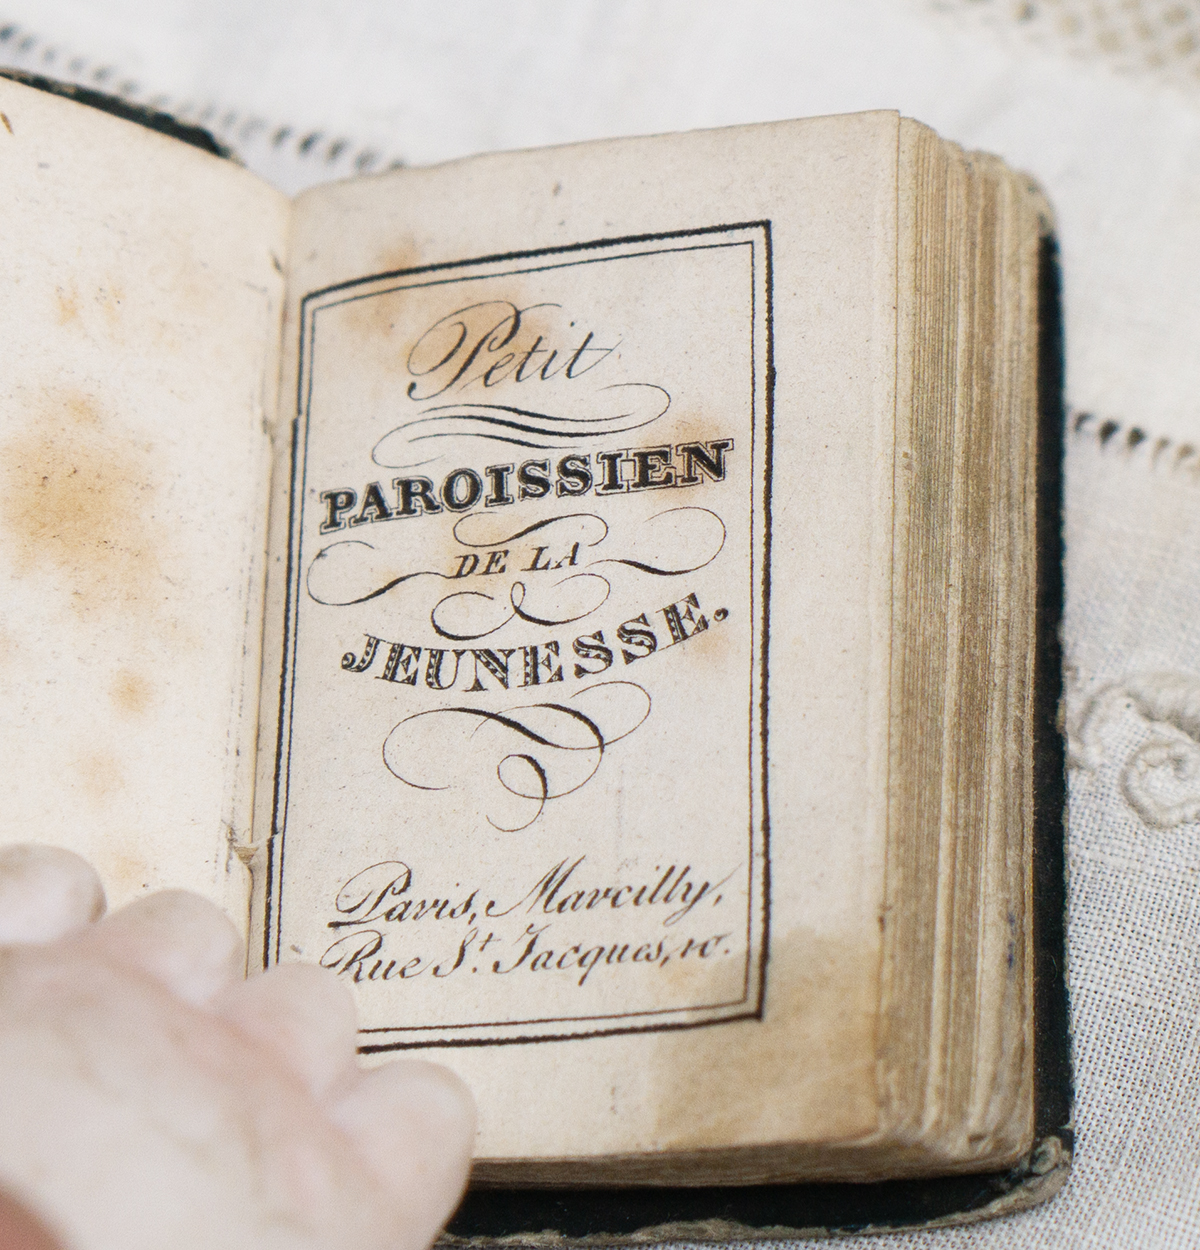 Petit
PAROISSIEN
DE LA
JEUNESSE.
Paris, Marcilly,
Rue St. Jacques, 10.